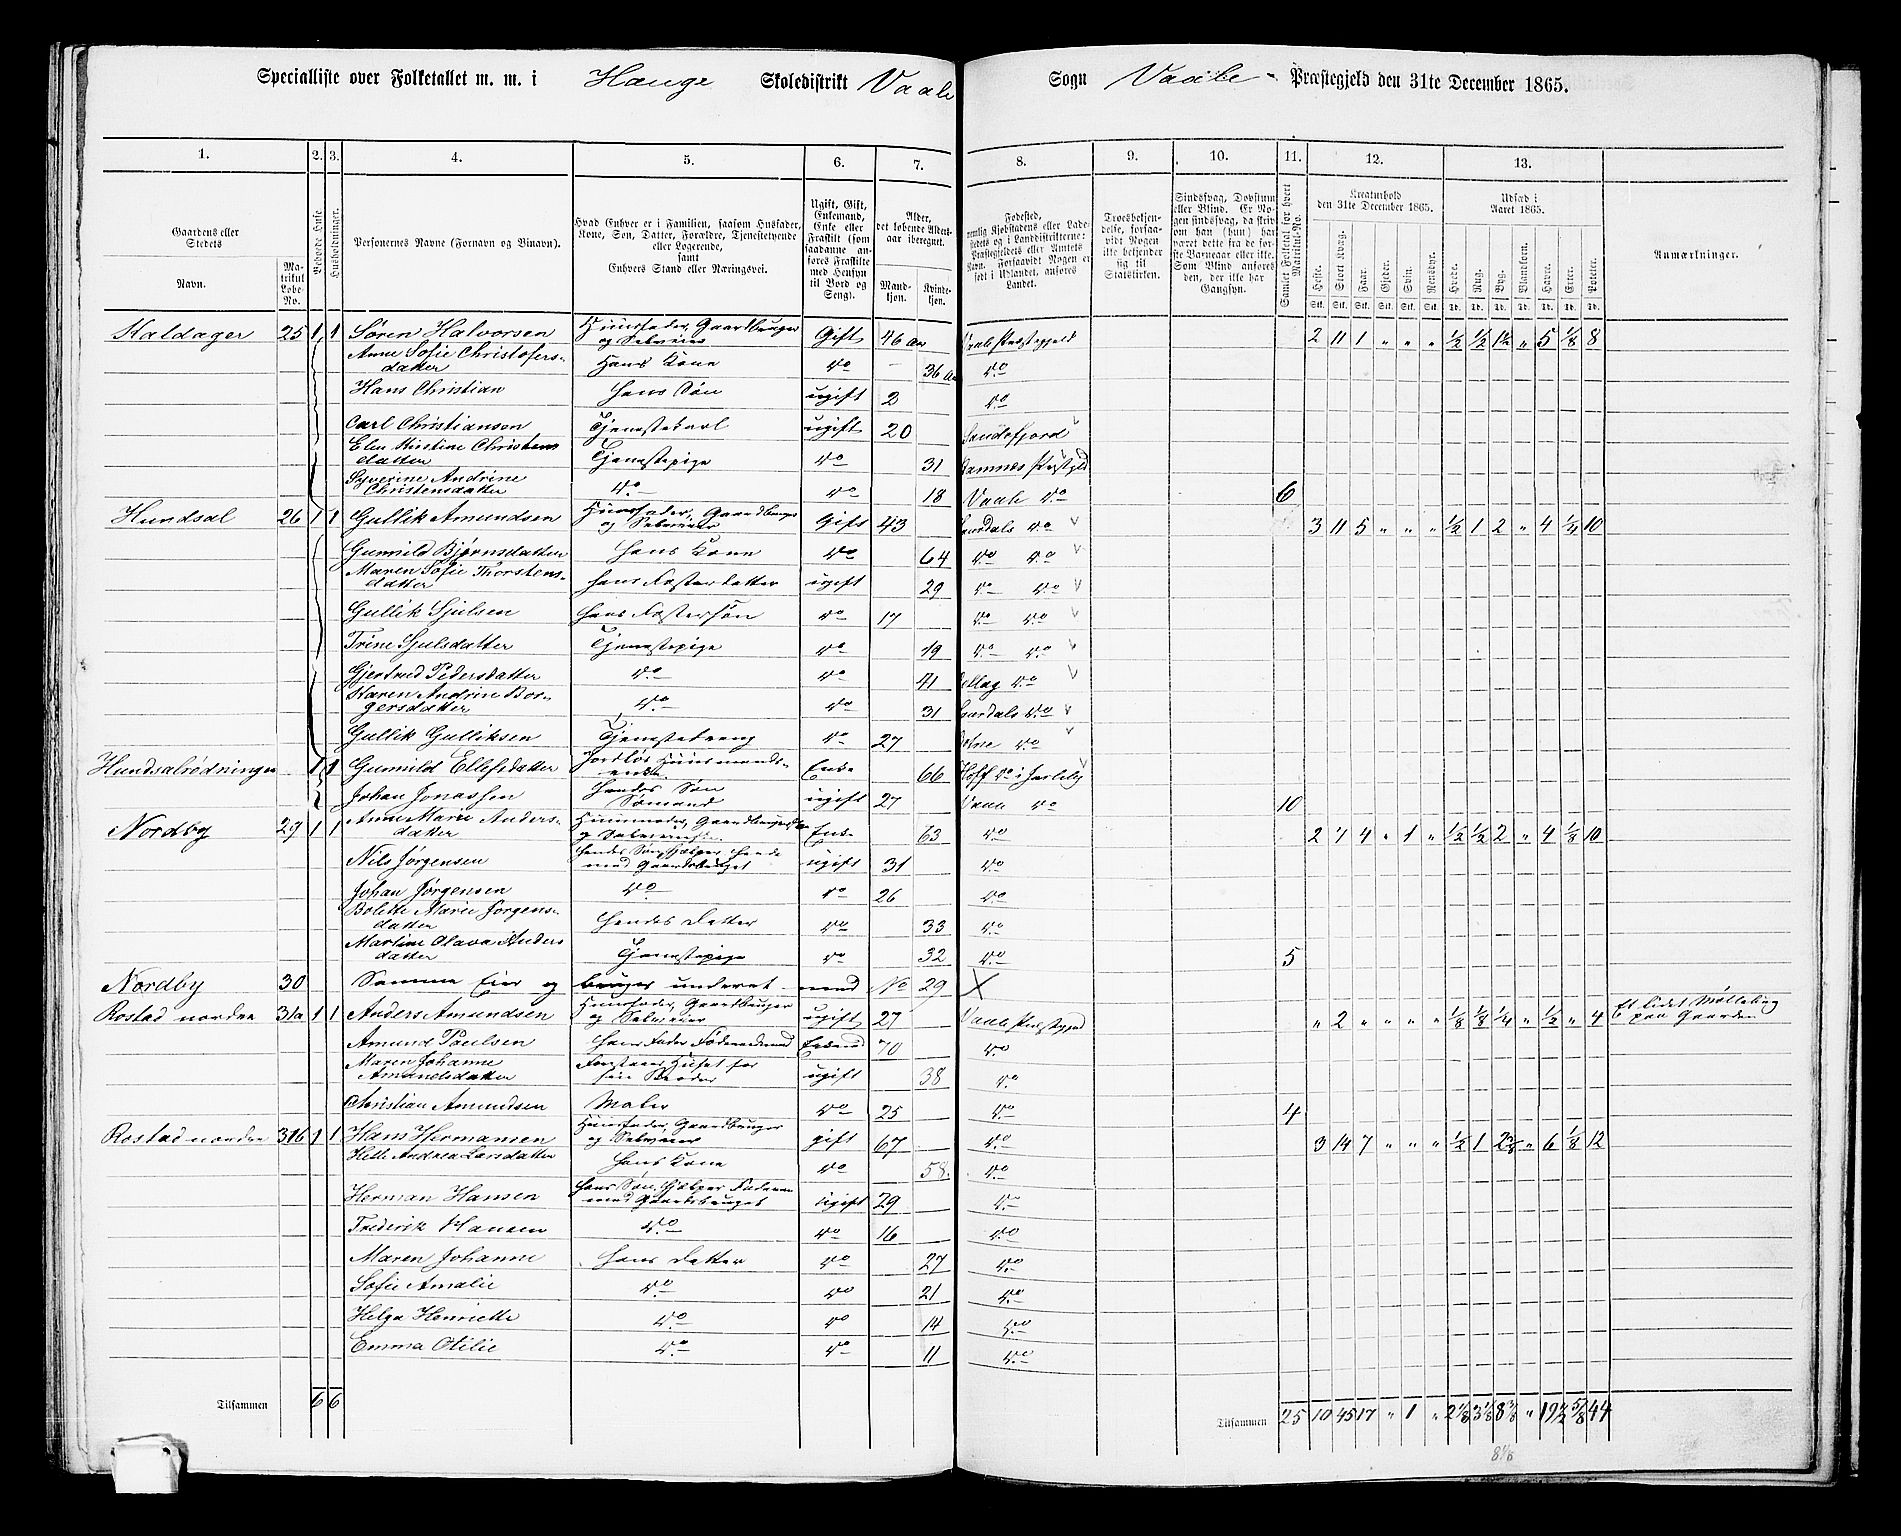 Specialliste over Folketallet m. m. i Hænge Skoledistrikt Vaale Sogn Vaale Præstegjeld den 31te December 1865.
1. 2. 3. 4. 5. 6. 7. 8. 9. 10. 11. 12. 13.
Gaardens eller Stedets
Navn.
Matrikul Løbe-No.
Bebodde Huse
Husholdninger.
Personernes Navne (Fornavn og Tilnavn).
Hvad Enhver er i Familien, saasom Husfader, Kone, Søn, Datter, Forældre, Tjenestetyende eller Logerende, samt Enhvers Stand eller Næringsvei.
Ugift, Gift, Enkemand, Enke eller Fraskilt (som saadanne anføres Fraskilte med Hensyn til Bord og Seng).
Alder, det løbende Aldersaar iberegnet.
Mandkjøn. Kvindekjøn.
Fødested,
nemlig Kjøbstadens eller Ladestedets og i Landdistrikterne: Præstegjeldets eller Amtets Navn. Forsaavidt Nogen er født i Udlandet, anføres Landet.
Troesbekjendelse, forsaavidt Nogen ikke bekjender sig til Statskirken.
Sindssvag, Døvstum eller Blind. Er Nogen sindssvag, da skriv om han (hun) har været dette fra de første Barneaar eller ikke. Som Blind anføres den, der ikke har Gangsyn.
Samlet Folketal for hvert Matrikul-No.
Kreaturhold den 31te December 1865.
Heste. Stort Kvæg. Faar. Gjeder. Svin. Rensdyr.
Udsæd i Aaret 1865.
Hvede. Rug. Byg. Blandkorn. Havre. Erter. Poteter.
Anmærkninger.
Haldager 25 1 1 Søren Halvorsen Huusfader, Gaardbruger og Selveier Gift 46 Aar Vaale Præstegjeld 2 11 1 " " " 1/2 1/2 1 1/2 " 5 1/8 8
Anne Sofie Christofersdatter Hans Kone do 36 do
Hans Christian hans Søn ugift 2 do
Carl Christiansen Tjenestekarl ugift 20 Sandefjord
Elen Kirstine Christensdatter Tjenestepige do 31 Ramnes Præstgjld
Syverine Andrine Christensdatter do do 18 Vaale do 6
Hundsal 26 1 1 Gullik Amundsen Huusfader, Gaardbruger og Selveier Gift 43 Laurdals do 3 11 5 " " " 1/2 1 2 " 4 1/4 10
Gunnild Bjørnsdatter hans Kone do 64 do do
Maren Sofie Thorstensdatter hans Fosterdatter ugift 29 do do
Gullik Sjulsen hans Fostersøn do 17 do do
Trine Sjulsdatter Tjenestepige do 19 do do
Gjertrud Pedersdatter do do 41 do
Karen Andrine Borgersdatter do do 31 Laurdals do
Gullik Gulliksen Tjenestedreng do 27 Botne do
Hundsalrødningen 1 1 Gunnild Ellefsdatter Jordløs Huusmandsenke Enke 66 Hoff do i Jarlsby
Johan Jonassen hendes Søn Sømand ugift 27 Vaale do 10
Nordby 29 1 1 Anne Marie Andersdatter Huusmoder, Gaardbrugerske og Selveierske Enke 63 do 2 7 4 " 1 " 1/2 1/2 2 " 4 1/8 10
Nils Jørgensen hendes Søn, hjælper hende med Gaardsbruget ugift 31 do
Johan Jørgensen do do 26 do
Bolette Marie Jørgensdatter hendes Datter do 33 do
Martine Olava Andersdatter Tjenestepige do 32 do 5
Nordby 30 Samme Eier og bruges underet med No 29 X
Rostad nordre 31a 1 1 Anders Amundsen Huusfader, Gaardbruger og Selveier ugift 27 Vaale Præstgjed " 2 " " " " 1/8 1/8 1/4 " 1/2 " 4 Et lidet Møllebrug paa Gaarden
Amund Paulsen hans Fader Føderaadsmand Enkmd 70 do
Maren Johanne Amundsdatter Forstaaer Huset for sin Broder ugift 38 do
Christian Amundsen Maler do 25 do 4
Rostad nordre 31b 1 1 Hans Hermansen Huusfader, Gaardbruger og Selveier gift 67 do 3 14 7 " " " 1/2 1 2 3/8 " 6 1/8 12
Helle Andrea Larsdatter hans Kone do 58. do
Herman Hansen hans Søn, hjælper Faderen med Gaardsbruget ugift 29 do
Frederik Hansen do do 16 do
Maren Johanne hans Datter do 27 do
Sofie Amalie do do 21 do
Helga Henriette do do 14 do
Emma Otilie do do 11 do
Tilsammen 6 6 Tilsammen 25 10 45 17 " 1 " 2 1/8 3 1/8 8 3/8 " 19 1/2 5/8 44
8 1/8